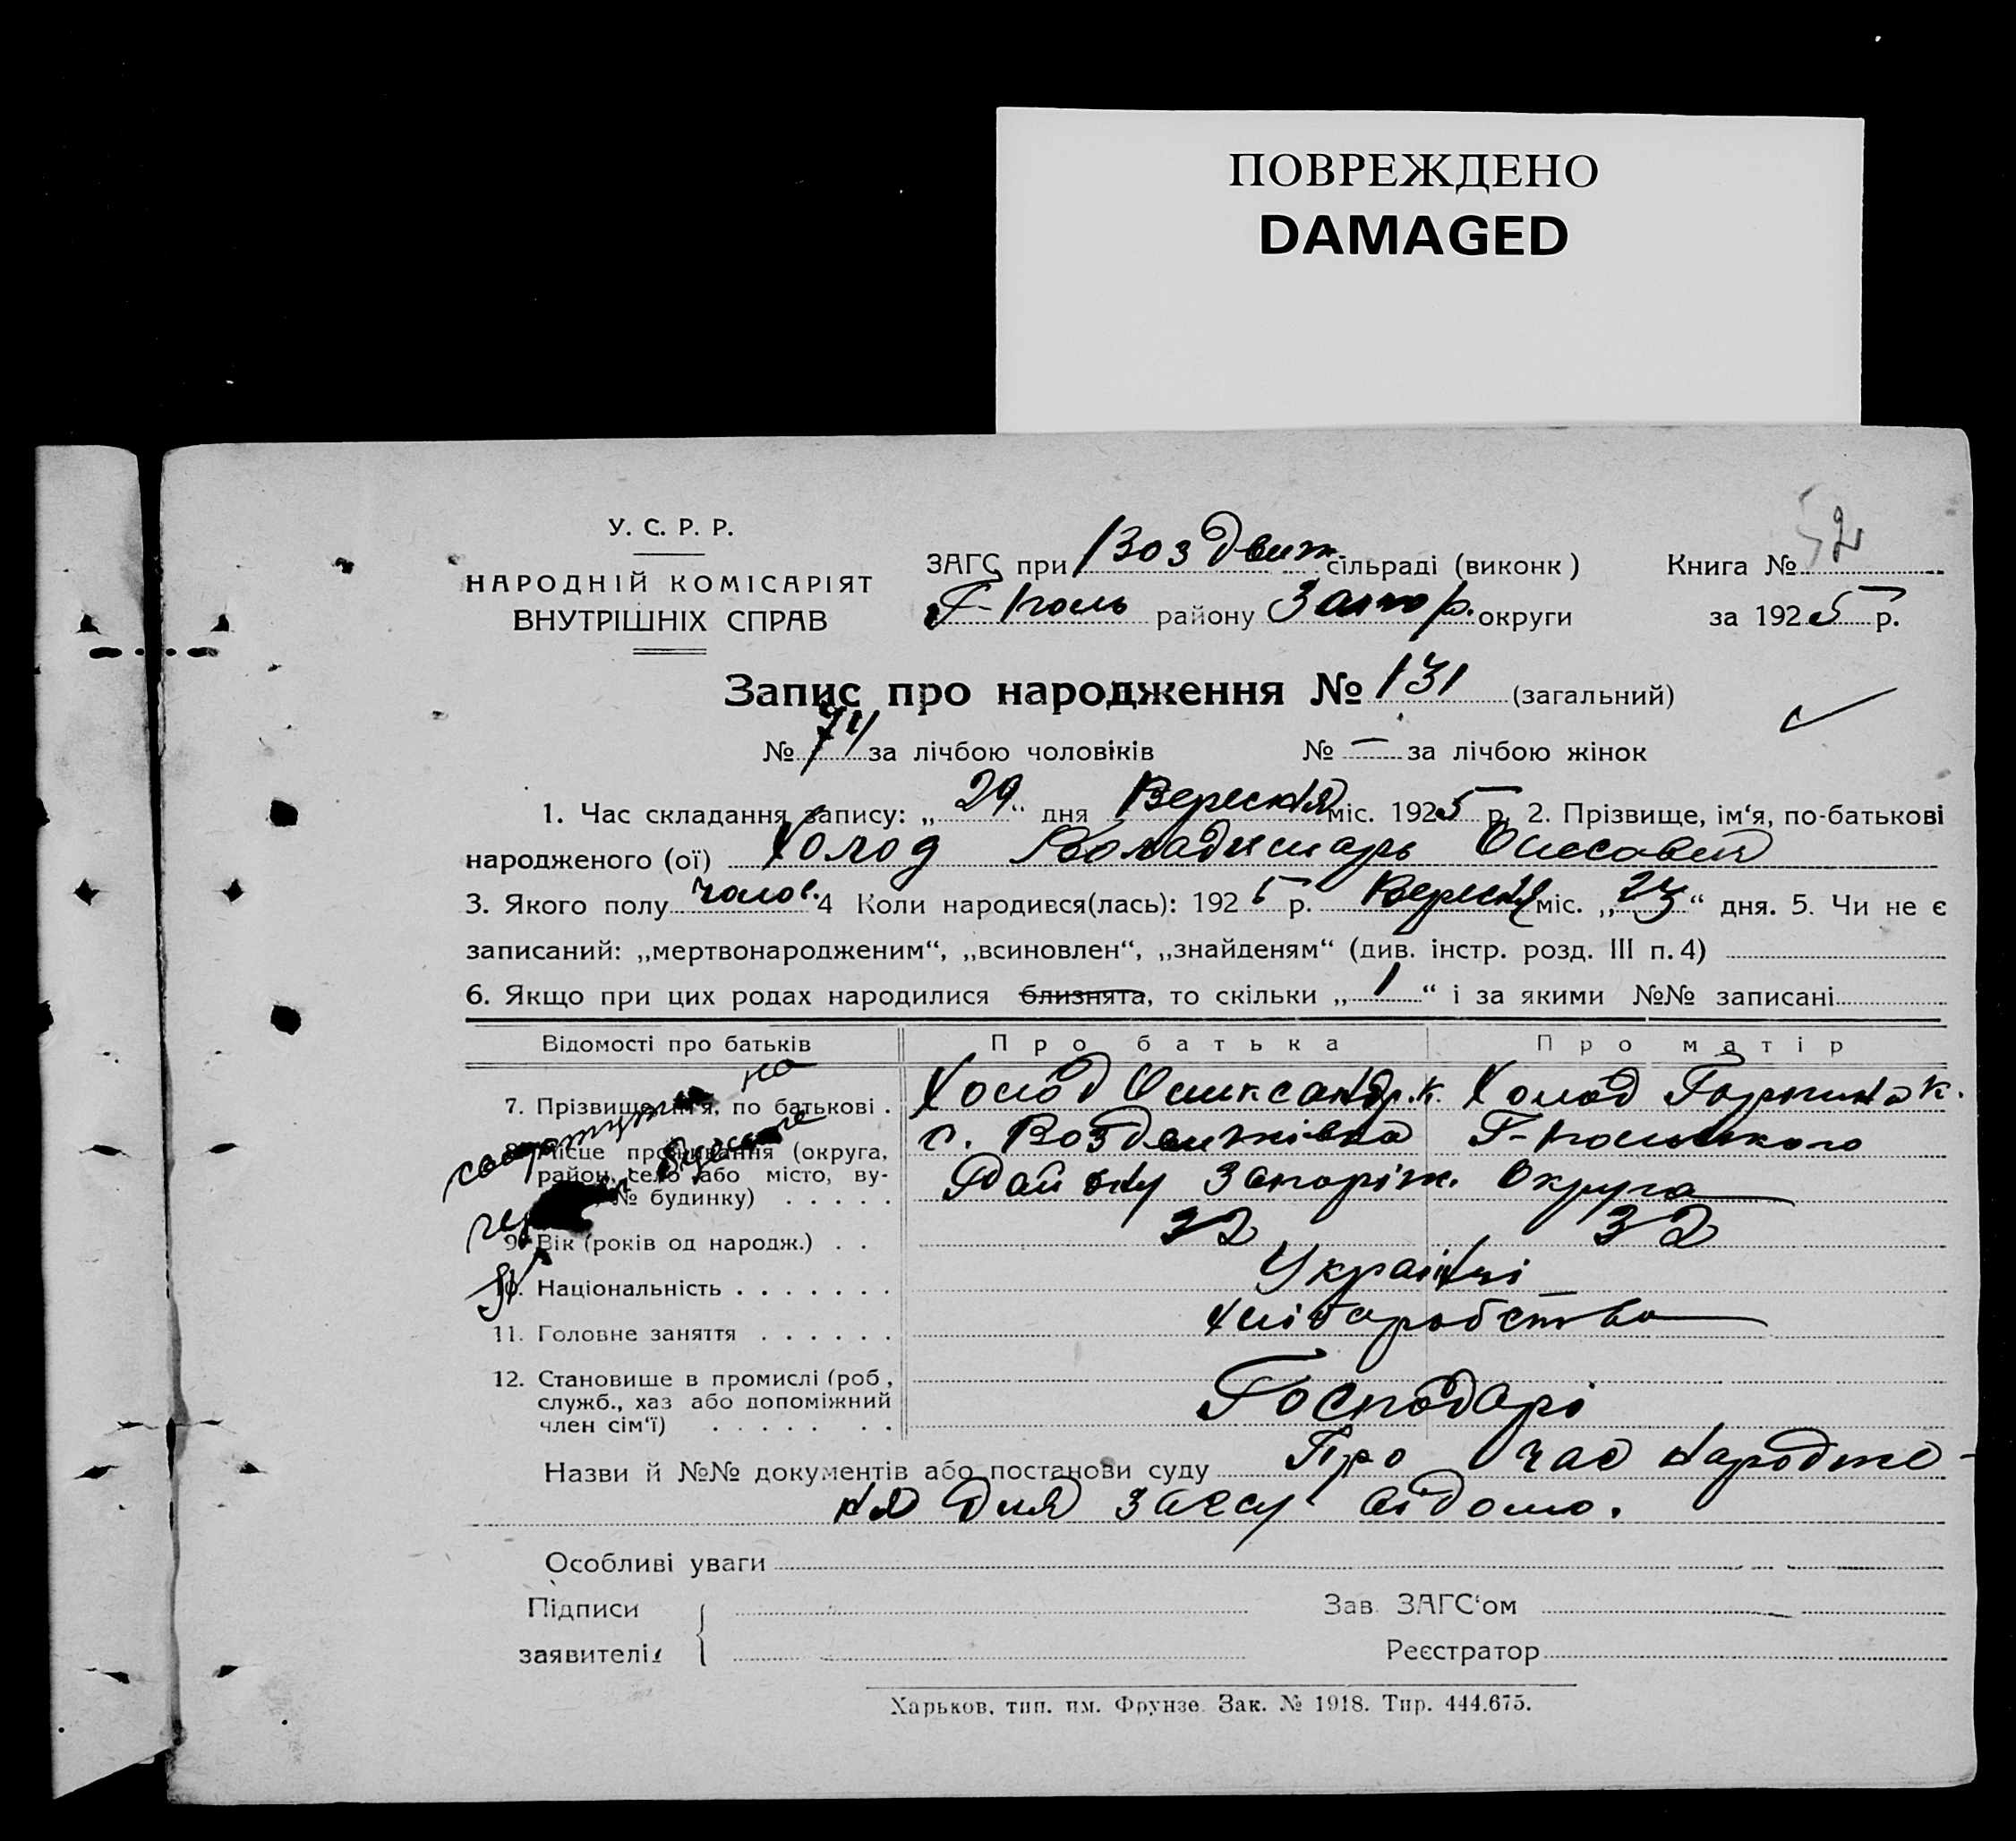 ПОВРЕЖДЕНО
DAMAGED
У. С. Р. Р.
НАРОДНІЙ КОМІСАРІЯТ
ВНУТРІШНІХ СПРАВ
ЗАГС при Воздвиж. сільраді (виконк)
Г-Поль району Запор. округи
Книга № 52
за 1925 р.
Запис про народження № 131 (загальний)
№ 71 за лічбою чоловіків № — за лічбою жінок
1. Час складання запису: „29“ дня Вересня міс. 1925 р. 2. Прізвище, ім‘я, по-батькові
народженого (ої) Холод Воладимарь
3. Якого полу чолов. 4 Коли народився(лась): 1925 р. Вересня міс. „23“ дня. 5. Чи не є
записаний: „мертвонародженим“, „всиновлен“, „знайденям“ (див. інстр. розд. III п. 4)
6. Якщо при цих родах народилися близнята, то скільки „1“ і за якими №№ записані
Відомості про батьків Про батька Про матір
7. Прізвище, ім‘я, по батькові . Холод Олександр. К. Холод К.
8. Місце проживання (округа, с. Воздвижівка Г-Польського
район, село або місто, ву- Району Запоріж. Округа
№ будинку) . . . . .
9. Вік (років од народж.) . . 32 32
10. Національність . . . . . . . Українці
11. Головне заняття . . . . . . хліборобство
12. Становище в промислі (роб.,
служб., хаз або допоміжний Господарі
член сім‘ї) . . . . . . .
Назви й №№ документів або постанови суду Про час народже-
ня для загсу відомо.
Особливі уваги
Підписи
заявителів
Зав. ЗАГС‘ом
Реєстратор
Харьков, тип. им. Фрунзе. Зак. № 1918. Тир. 444.675.